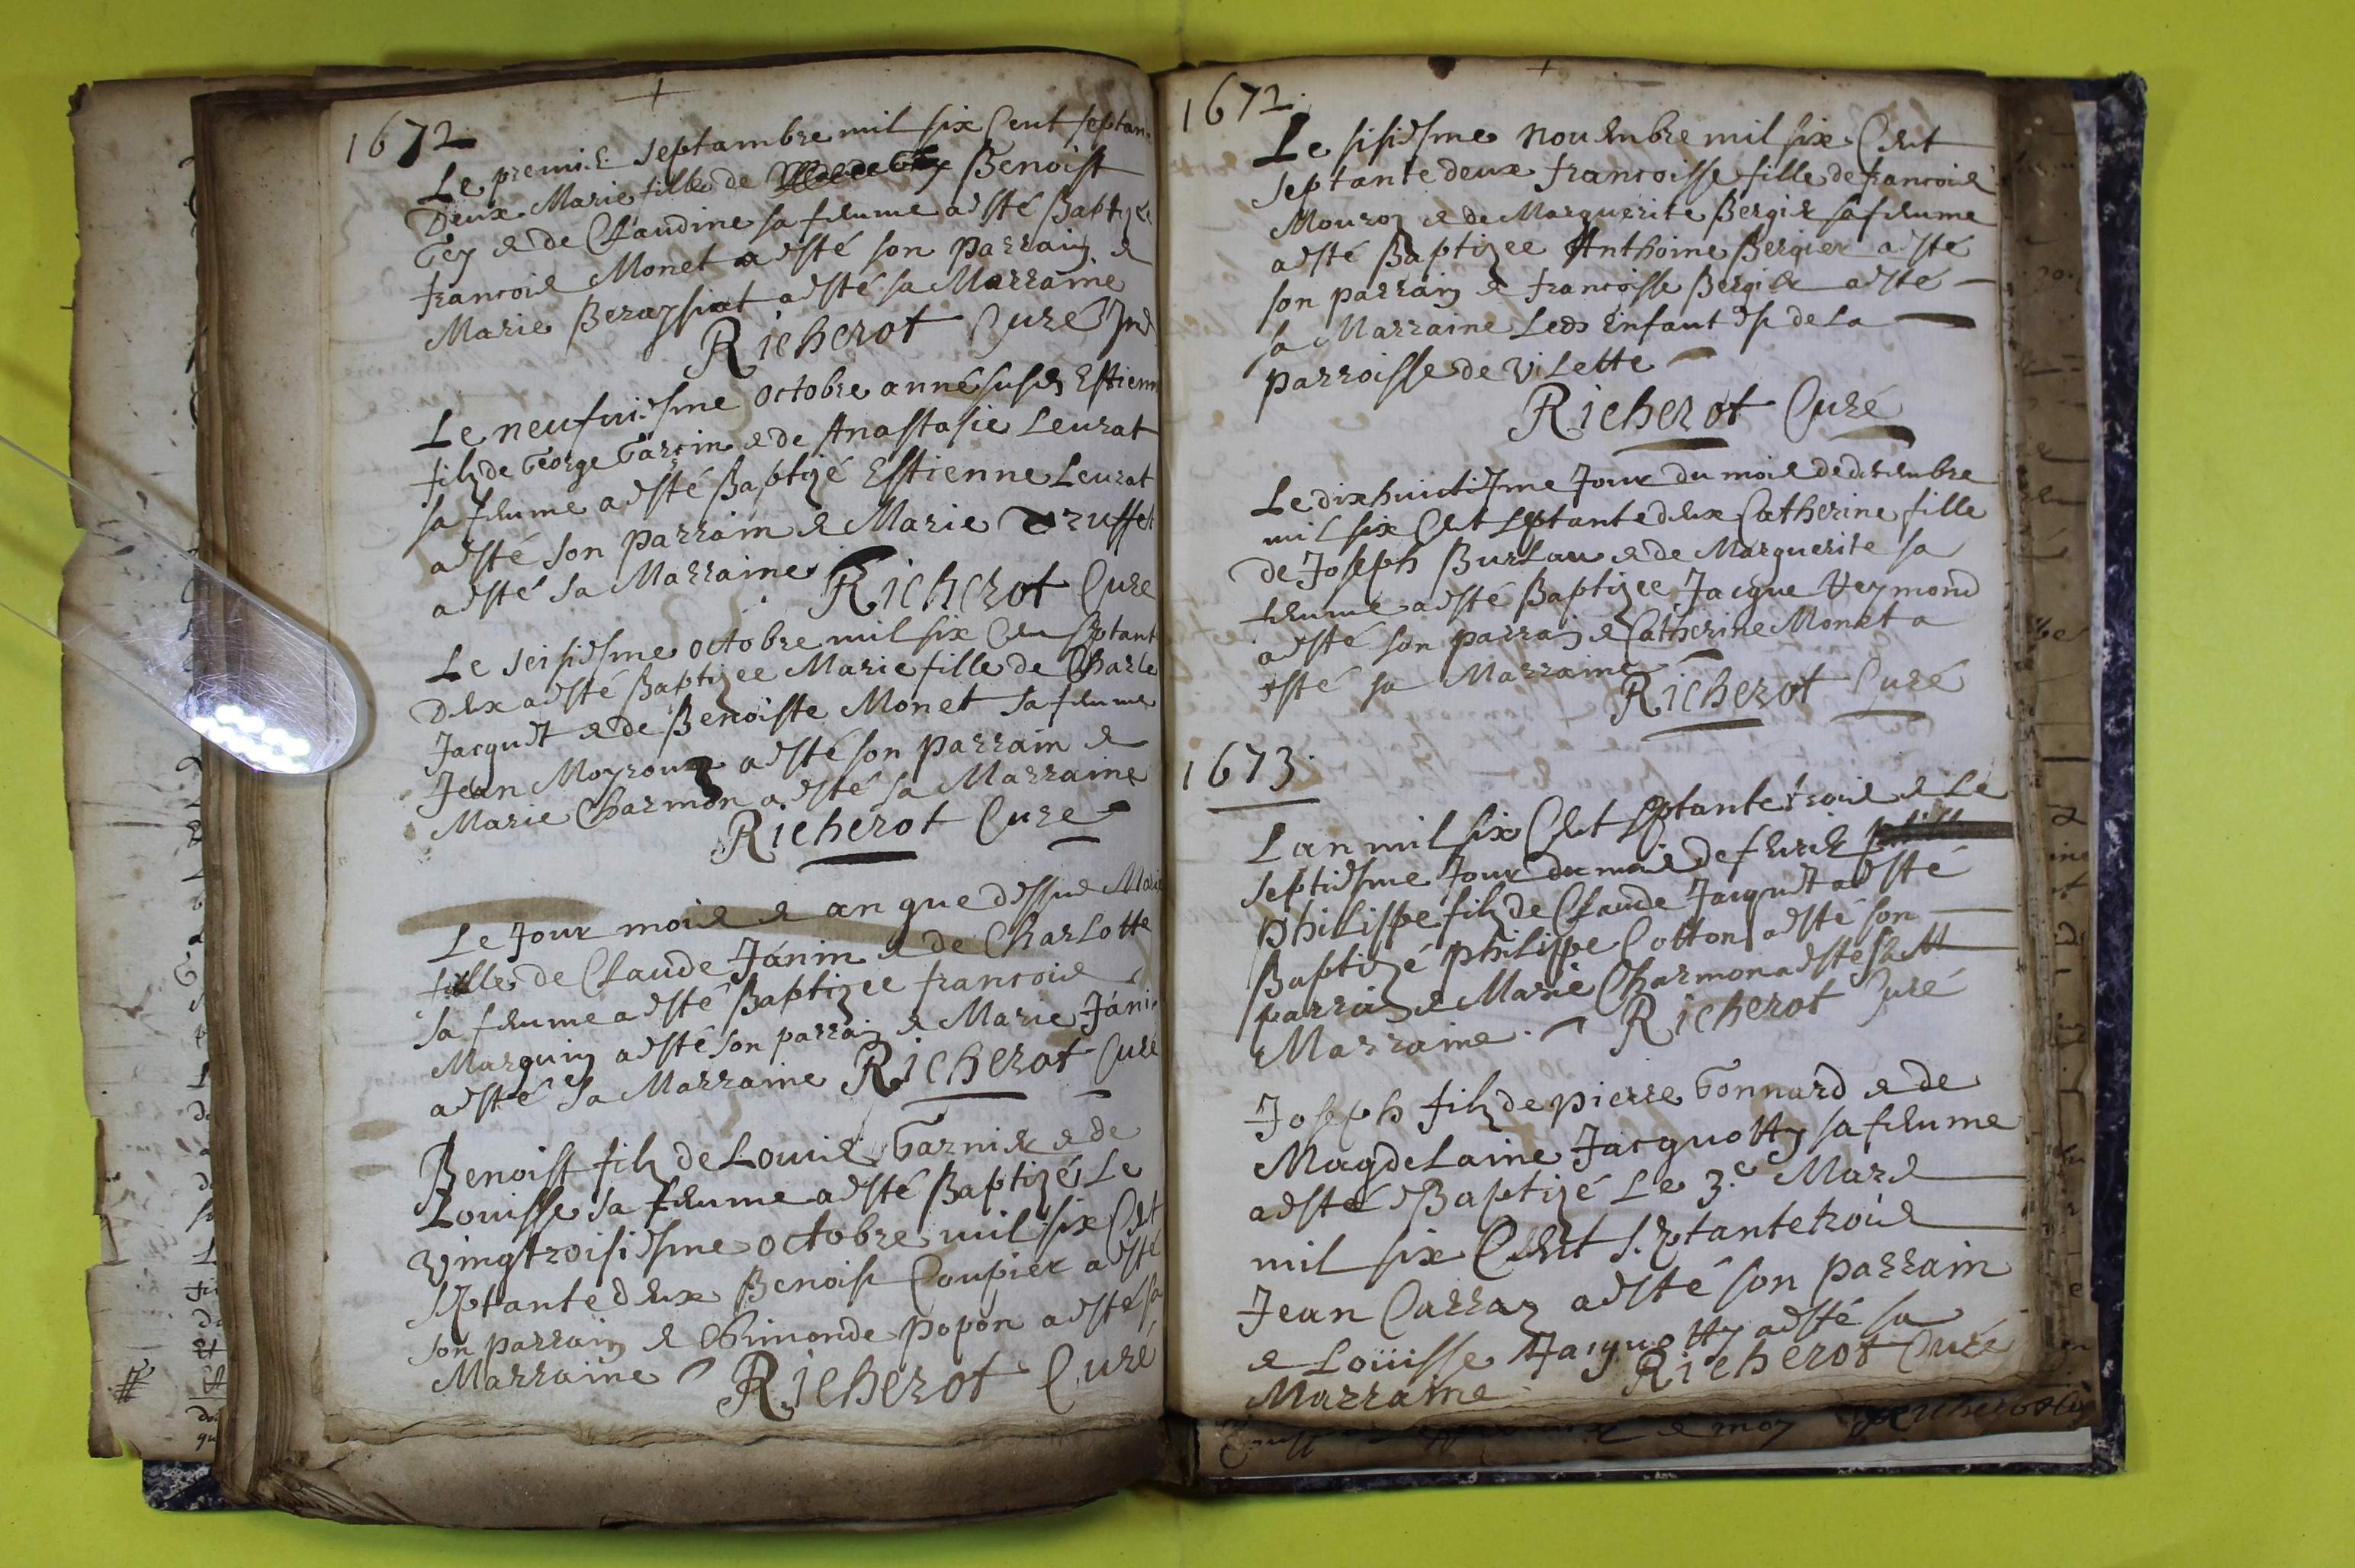 1672
Le premier Septambre mil six Cent septan
Deux Marie fille de Benoist
Gey & de Claudine sa femme a esté Baptizée
francois Monet a esté son parrain &
Marie Beraysiat a esté sa Marraine
Richerot Curé
Le neufuiesme octobre anné susd Estienn
filz de George Garcin & de Anastasie Leurat
sa femme a esté Baptizé Estienne Leurat
a esté son parrain & Marie truffet
a esté sa Marraine Richerot Cure
Le seisiesme octobre mil six Cen septant
Deux a esté Baptizee Marie fille de Charle
Jacquet & de Benoiste Monet sa femme
Jean Moyroux a esté son parrain &
Marie Charmon a esté sa Marraine
Richerot Cure
Le Jour mois & an que dessus Mari
fille de Claude Janin & de Charlotte
sa femme a esté Baptizee francois
Marquin a esté son parrain & Marie Jani
a esté sa Marraine Richerot Curé
Benoist filz de Louis Garnier & de
Louisse sa femme a esté Baptizé Le
vingtroisiesme octobre mil six Cet
septante deux Benoist Coupier a esté
son parrain & Chimonde popon a esté sa
Marraine Richerot Curé
1672.
Le sisiesme nouembre mil six Cent
septante deux francoisse fille de francois
Mouroz & de Marguerite Bergier sa femme
a esté Baptizee Anthoine Bergier a esté
son parrain & francoisse Bergier a esté
sa Marraine Led Enfant est de La
parroisse de viLette
Richerot Curé
Le dix huictiesme Jour du mois de decembre
mil six Cent septante deux Catherine fille
de Joseph BurLau & de Marguerite sa
femme a esté Baptizee Jacque Reymond
a esté son parrain & Catherine Monet a
esté sa Marraine
Richerot Curé
1673.
L an mil six Cent septante trois & Le
septiesme Jour du mois de feurier
philippe filz de Claude Jacquet a esté
Baptizé philippe Cotton a esté son
parrain & Marie Charmon a esté sa M
Marraine. Richerot Curé
Joseph filz de pierre Gonnard & de
MagdeLaine Jacquotty sa femme
a esté Baptizé Le 3.e Mars
mil six Cent septante trois
Jean Carraz a esté son parrain
& Loüisse Jacquotty a esté sa
Marraine Richerot Curé